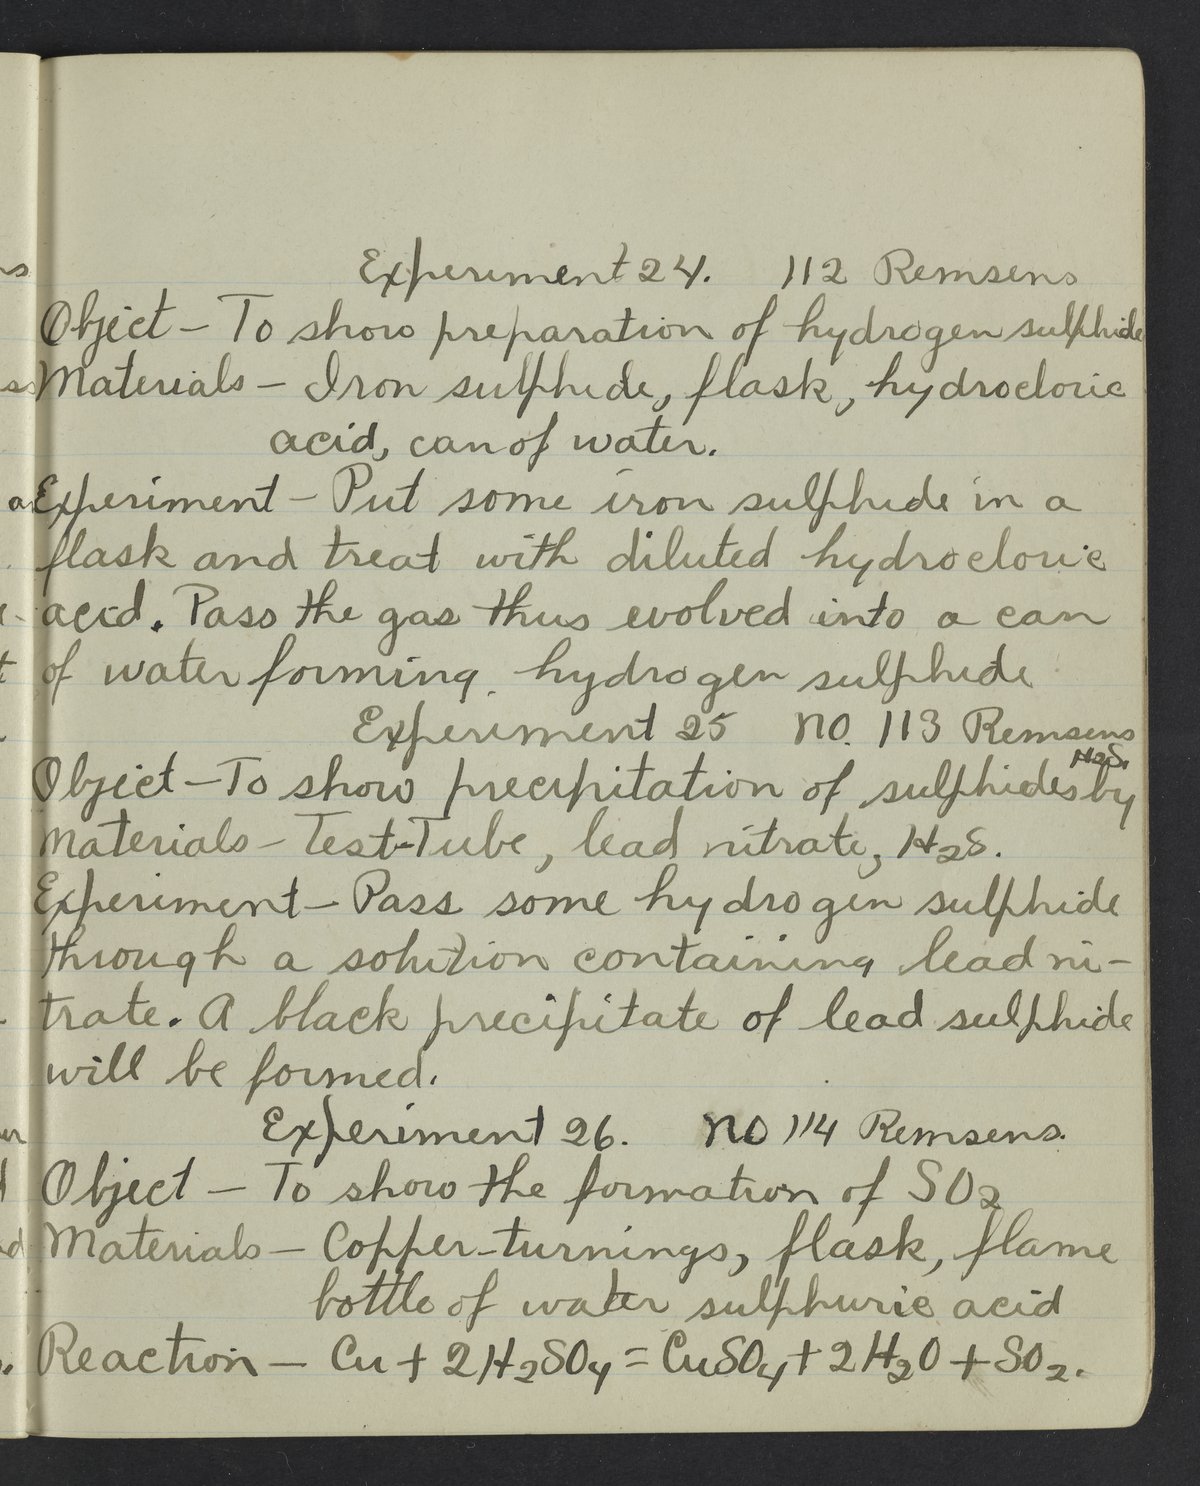 Experiment 24. 112 Remsens
Object - To show preparation of hydrogen sulphide
Materials - Iron sulphide, flask, hydrocloric
acid, can of water.
Experiment - Put some iron sulphide in a
flask and treat with diluted hydrocloric
acid. Pass the gas thus evolved into a can
of water forming hydrogen sulphide
Experiment 25 no. 113 Remsens
H2S.
Object - To show precipitation of sulphides by
Materials - Test-Tube, lead nitrate, H2S.
Experiment - Pass some hydrogen sulphide
through a solution containing lead ni-
trate. A black precipitate of lead sulphide
will be formed.
Experiment 26. no 114 Remsens.
Object - To show the formation of SO2
Materials - Copper-turnings, flask, flame
bottle of water sulphuric acid
Reaction - Cu + 2H2SO4 = CuSO4 + 2H2O + SO2.